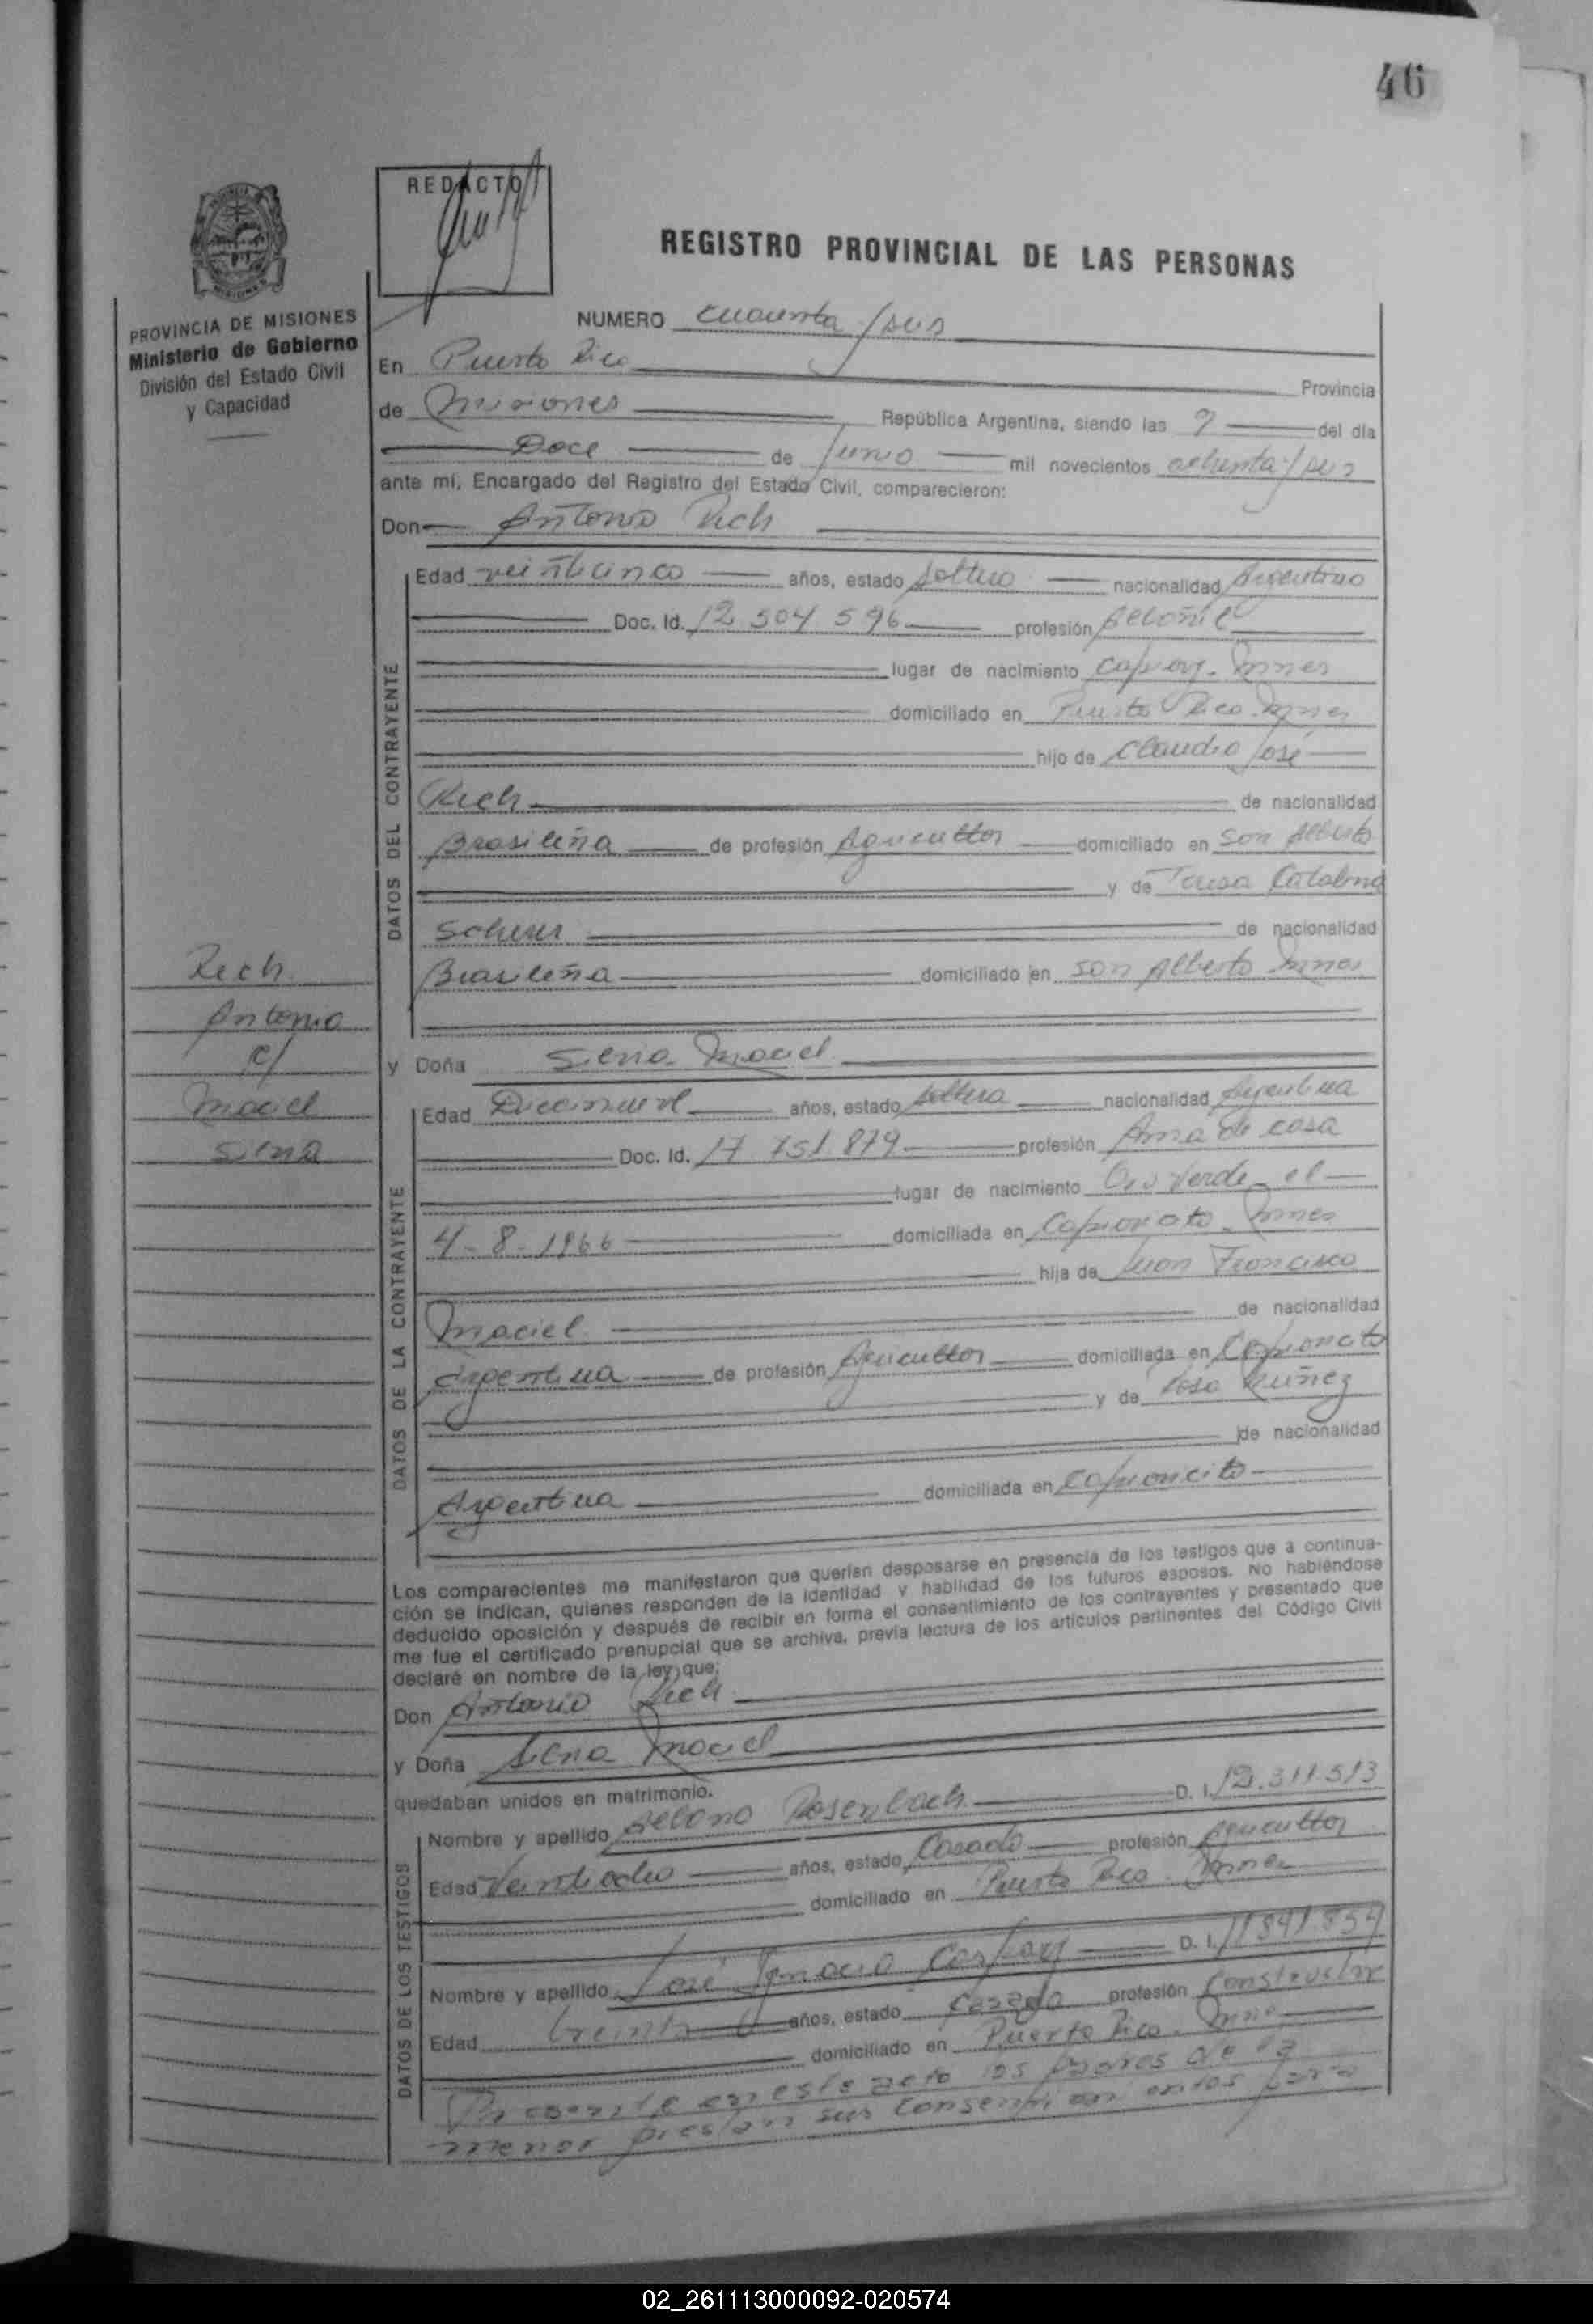 46
REDACTO
REGISTRO PROVINCIAL DE LAS PERSONAS
PROVINCIA DE MISIONES
Ministerio de Gobierno
División del Estado Civil
y Capacidad
NUMERO cuarenta y seis
En Puerto Rico Provincia
de Misiones República Argentina, siendo las 9 del día
Doce de Junio mil novecientos ochenta y seis
ante mí, Encargado del Registro del Estado Civil, comparecieron:
Don Antonio Rech
DATOS DEL CONTRAYENTE
Edad veinticinco años, estado soltero nacionalidad Argentino
Doc. Id. 12.504.596 profesión Albañil
lugar de nacimiento Capiovy - Mnes
domiciliado en Puerto Rico - Mnes
hijo de Claudio José
Rech de nacionalidad
Brasileña de profesión Agricultor domiciliado en San Alberto
y de Teresa Catalina
de nacionalidad
Brasileña domiciliado en San Alberto Mnes
Rech
Antonio
c/
Maciel
Sirna
y Doña Maciel
DATOS DE LA CONTRAYENTE
Edad Diecinueve años, estado soltera nacionalidad Argentina
Doc. Id. 17.751.879 profesión Ama de casa
lugar de nacimiento Oro Verde el
4-8-1966 domiciliada en Mnes
hija de Juan Francisco
Maciel de nacionalidad
Argentina de profesión Agricultor domiciliada en Capioncito
y de Rosa Nuñez
de nacionalidad
Argentina domiciliada en Capioncito
Los comparecientes me manifestaron que querían desposarse en presencia de los testigos que a continua-
ción se indican, quienes responden de la identidad y habilidad de los futuros esposos. No habiéndose
deducido oposición y después de recibir en forma el consentimiento de los contrayentes y presentado que
me fue el certificado prenupcial que se archiva, previa lectura de los artículos pertinentes del Código Civil
declaré en nombre de la ley, que:
Don Antonio Rech
y Doña Maciel
quedaban unidos en matrimonio.
DATOS DE LOS TESTIGOS
Nombre y apellido Albano Rosenbach D. I. 12.311.513
Edad Veintiocho años, estado Casado profesión Agricultor
domiciliado en Puerto Rico - Mnes
Nombre y apellido José Ignacio D. I.
Edad treinta años, estado Casado profesión Constructor
domiciliado en Puerto Rico - Mnes
Presente en este acto los padres de la
menor prestan sus consentimientos para
02_261113000092-020574